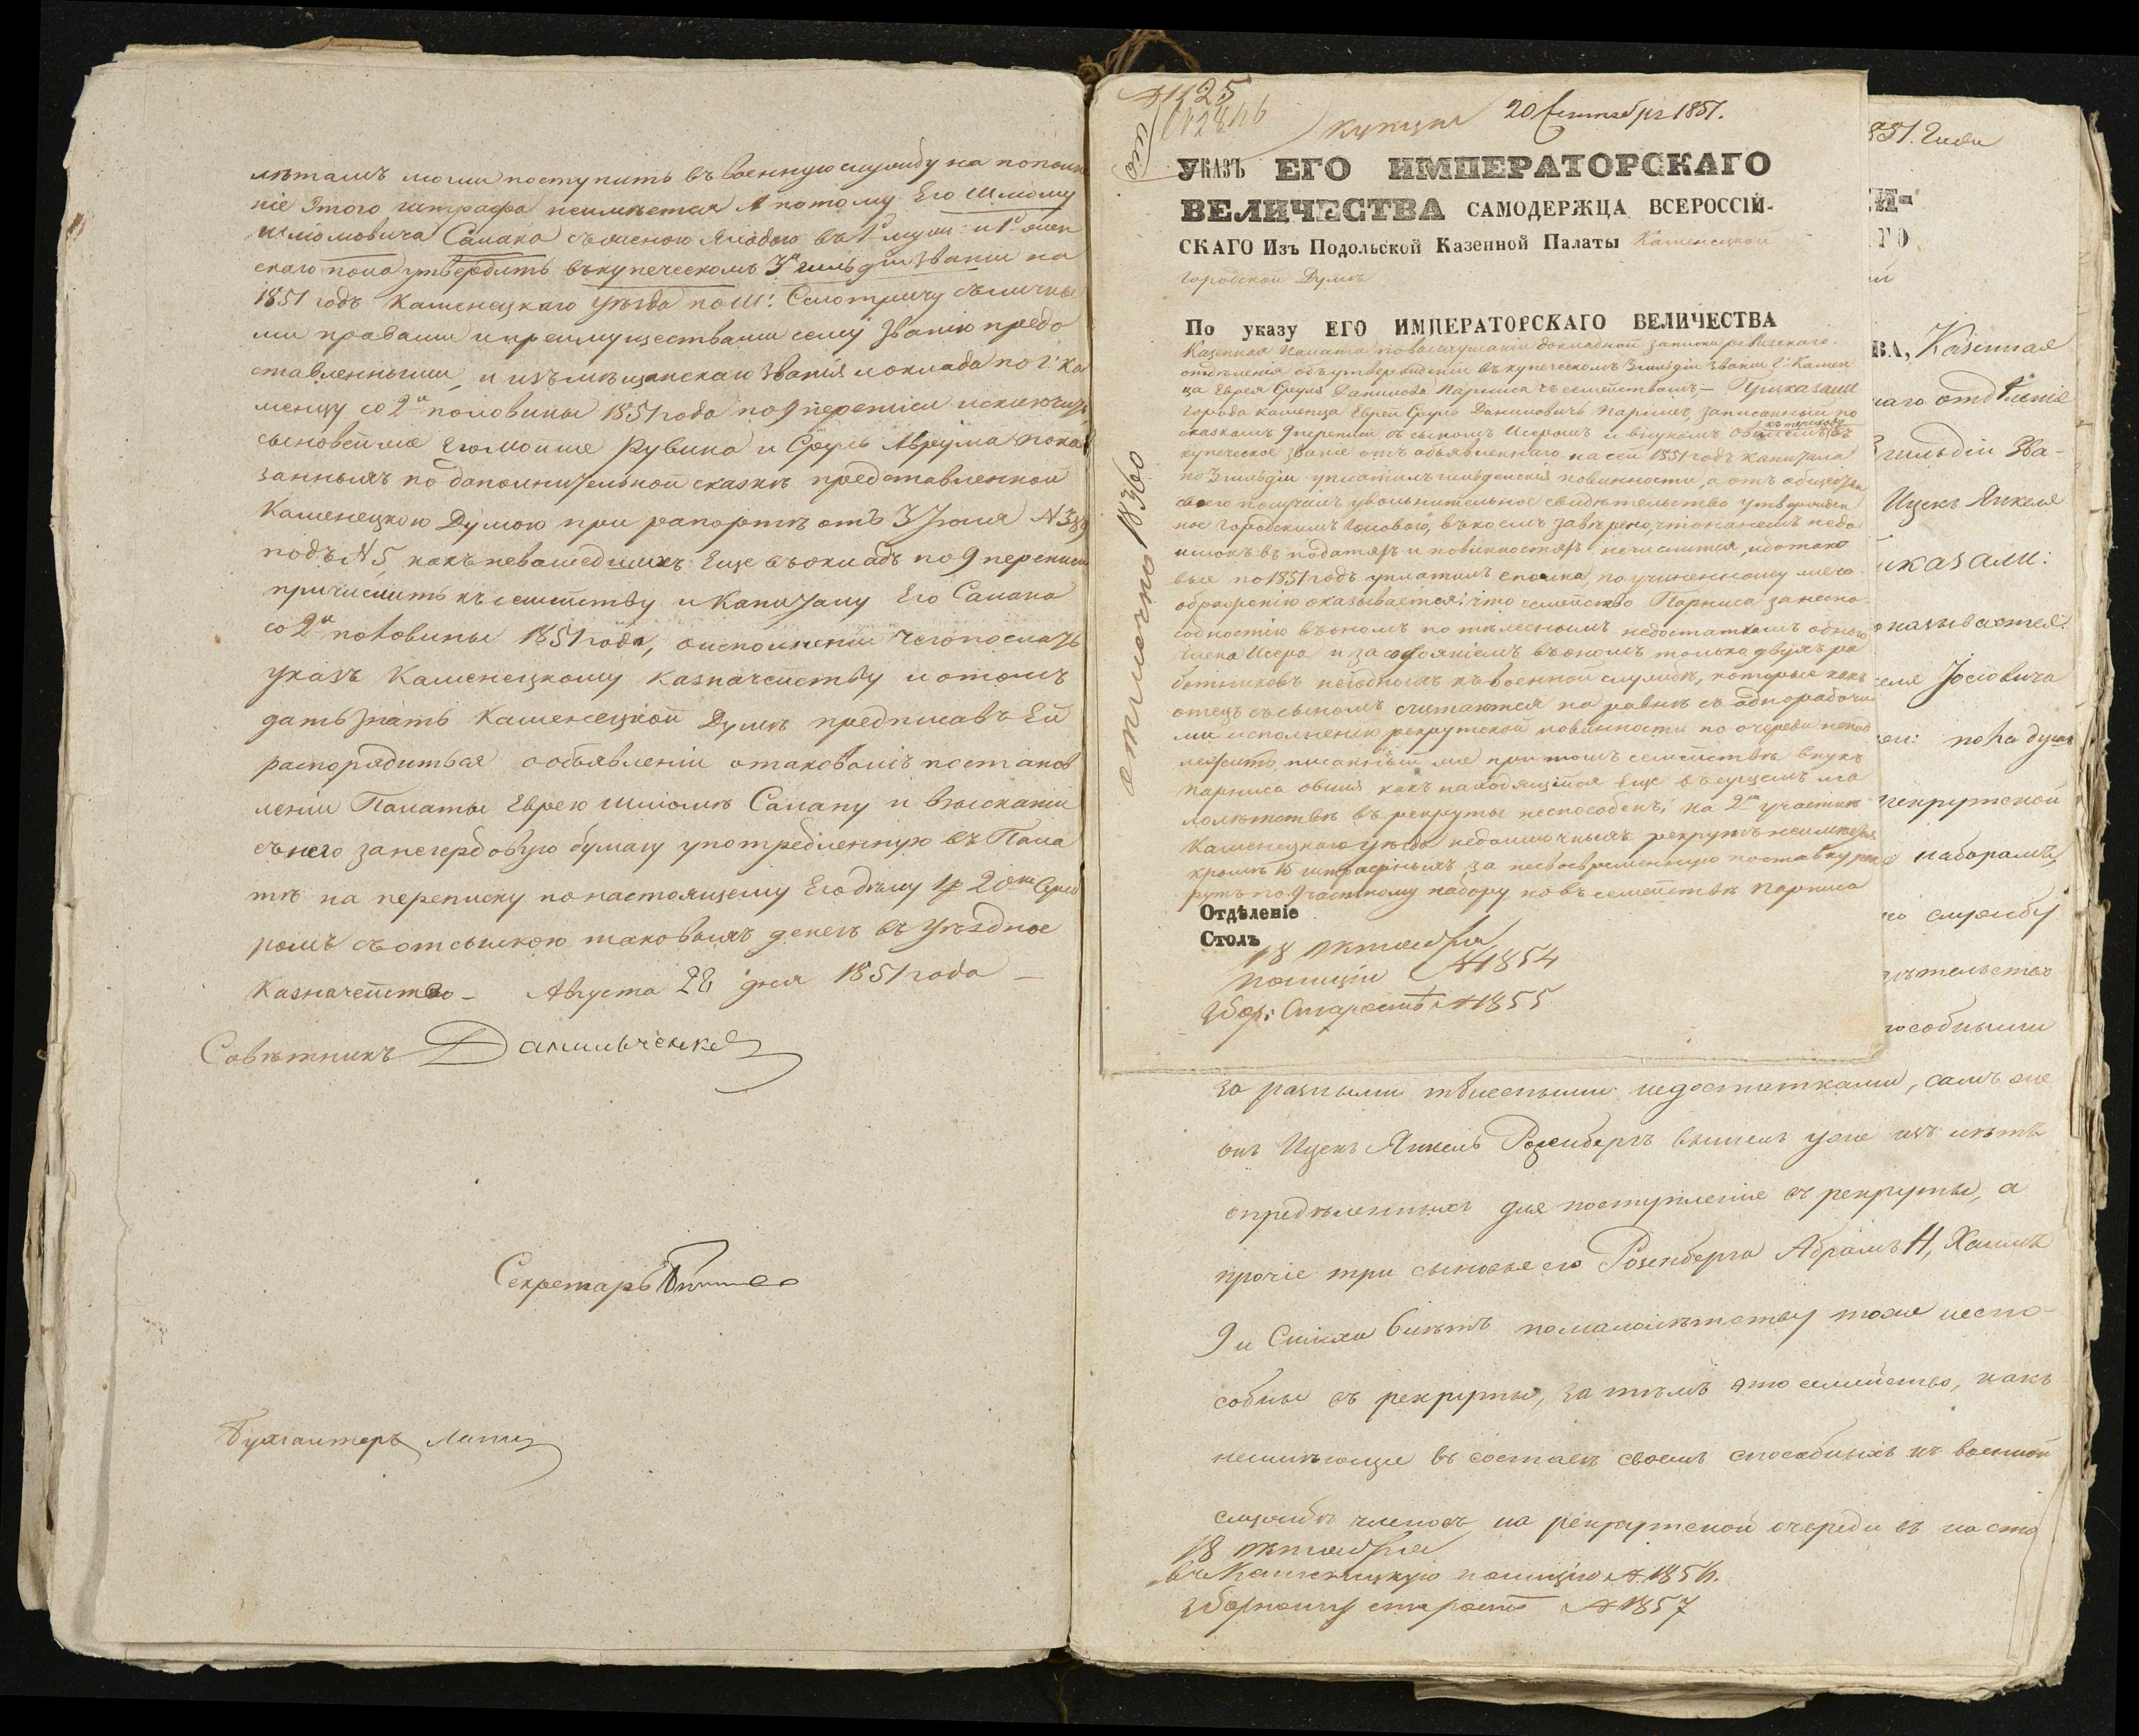 лѣтамъ могли поступить въ военную службу на пополне
ніе этого штрафа неимѣется А потому Его Шлёму
Шлёмовича Салана съ женою въ 1 муж: и 1 жен
скаго пола утвердить въ купеческомъ 3й гильдіи званіи на
1851 годъ Каменецкаго уѣзда по М: Смотричу съ личны
ми правами и преимуществами сему званію предо
ставленными, и изъ мѣщанскаго званія и оклада по г: Ка
менцу со 2й половины 1851 года по 9 переписи исключить
сыновей же его Мошка Рувина и Сруль Аврума пока
занныхъ по дополнительной сказкѣ представленной
Каменецкою Думою при рапортѣ отъ 3 Іюля №
подъ № 5, какъ невошедшихъ еще въ окладъ по 9 переписи
причислить къ семейству и капиталу Его Салана
со 2й половины 1851 года, о исполненіи чего послать
указъ Каменецкому Казначейству и о томъ
дать знать Каменецкой Думѣ предписавъ Ей
распорядиться о объявленіи о таковомъ постанов
леніи Палаты Еврею Шлёмѣ Салану и взысканіи
съ него за негербовую бумагу употребленную въ Пала
тѣ на переписку по настоящему Его дѣлу 1 р 20 ко Сереб
ромъ съ отсылкою таковыхъ денегъ въ Уѣздное
Казначейство – Августа 28 дня 1851 года –
Совѣтникъ Данильченко
Секретарь
Бухгалтеръ
№1125
купцы 20 Сентября 1851.
Указъ ЕГО ИМПЕРАТОРСКАГО
ВЕЛИЧЕСТВА САМОДЕРЖЦА ВСЕРОССІЙ-
СКАГО Изъ Подольской Казенной Палаты Каменецкой
городской Думѣ
По указу ЕГО ИМПЕРАТОРСКАГО ВЕЛИЧЕСТВА
Казенная Палата по выслушаніи докладной записки ревизскаго
отдѣленія объ утвержденіи въ купеческомъ 3 гильдіи званіи г: Камен
ца Еврея Сруля Данилова Парниса съ семействомъ – Приказали
города Каменца Еврей Сруль Даниловичъ Парнисъ, записанный по
сказкамъ 9 переписи съ сыномъ Исеромъ и внукомъ къ переходу въ
купеческое званіе отъ объявленнаго на сей 1851 годъ капитала
по 3 гильдіи уплатилъ гильдейскія повинности, а отъ общества
своего получилъ увольнительное свидѣтельство утвержден
ное Городскимъ Головою, въ коемъ завѣрено, что на немъ недо
имокъ въ податяхъ и повинностяхъ нечислится, и что тако
выя по 1851 годъ уплатилъ сполна, по учиненному же со
ображенію оказывается: что семейство Парниса за неспо
собностію въ ономъ по тѣлеснымъ недостаткамъ одного
члена Исера и за состояніемъ въ ономъ только двухъ ра
ботниковъ негодныхъ къ военной службѣ, которые какъ
отецъ съ сыномъ считаются на равнѣ съ однорабочи
ми исполненію рекрутской повинности по очереди непод
лежитъ, писанный же при томъ семействѣ внукъ
Парниса какъ находящійся еще въ сущемъ ма
лолѣтствѣ въ рекруты неспособенъ; на 2м участкѣ
Каменецкаго уѣзда недоимочныхъ рекрутъ неимѣется
кромѣ 15 штрафныхъ за несвоевременную поставку рек
рутъ по 9 частному набору но въ семействѣ Парниса
Отдѣленіе
Столъ
18 октября
полиціи №1854
Збор: Старостѣ №1855
отпускъ 18360
851. Года
И-
ГО
ВА, Казенная
наго отдѣленія
3 гильдіи зва-
Ицекъ Янкеля
иказали:
оказывается:
Іосіовича
рекрутской
наборамъ,
службу
способными
за разными тѣлесными недостатками, самъ же
онъ Ицекъ Янкель Розенбергъ вышелъ уже изъ лѣтъ
опредѣленныхъ для поступленія въ рекруты, а
прочіе три сыновья его Розенберга Абрамъ 11, Хаимъ
9 и Симха 6 лѣтъ по малолѣтству тоже неспо-
собны въ рекруты, за тѣмъ это семейство, какъ
неимѣющее въ составѣ своемъ способныхъ къ военной
службѣ членовъ, на рекрутской очереди въ насто
18 октября
въ Каменецкую полицію №1856.
Зборному старостѣ №1857